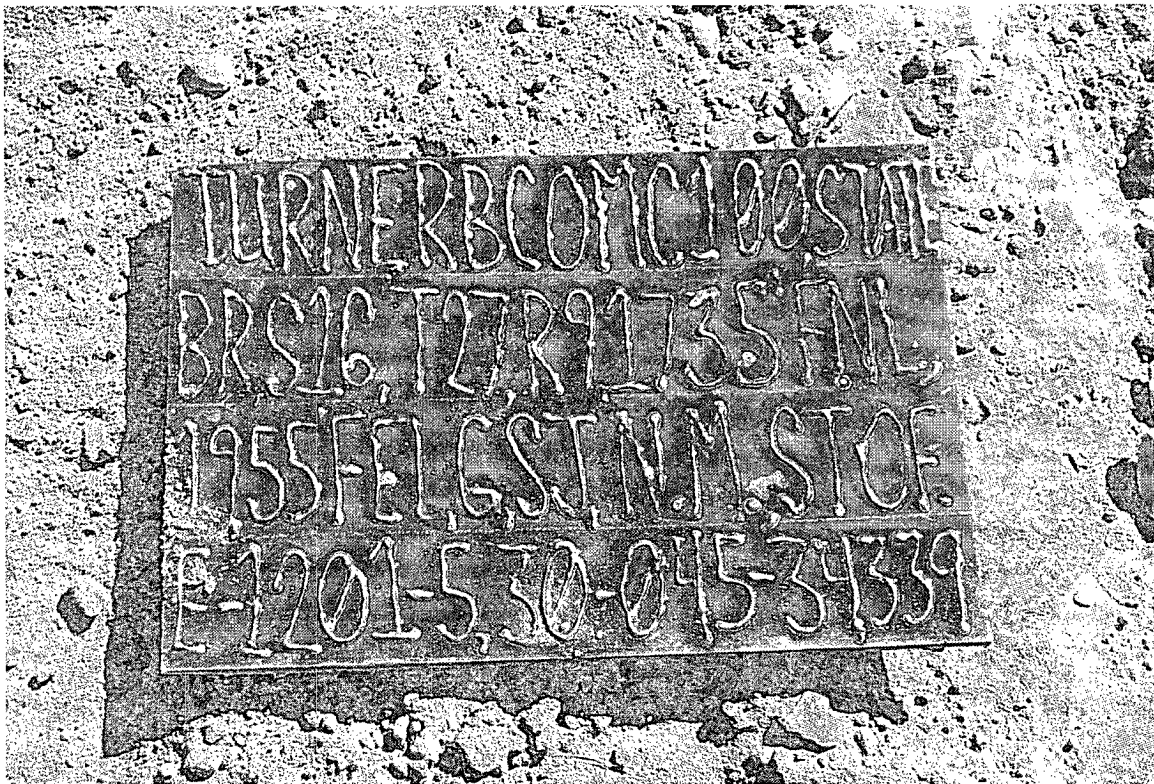 TURNER B COM C 100, STATE
BR, S16, T27, R9, 1735 F.NL,
1955 FEL, G, S.J, N.M. ST OF.
E-1201-5, 30-045-34339